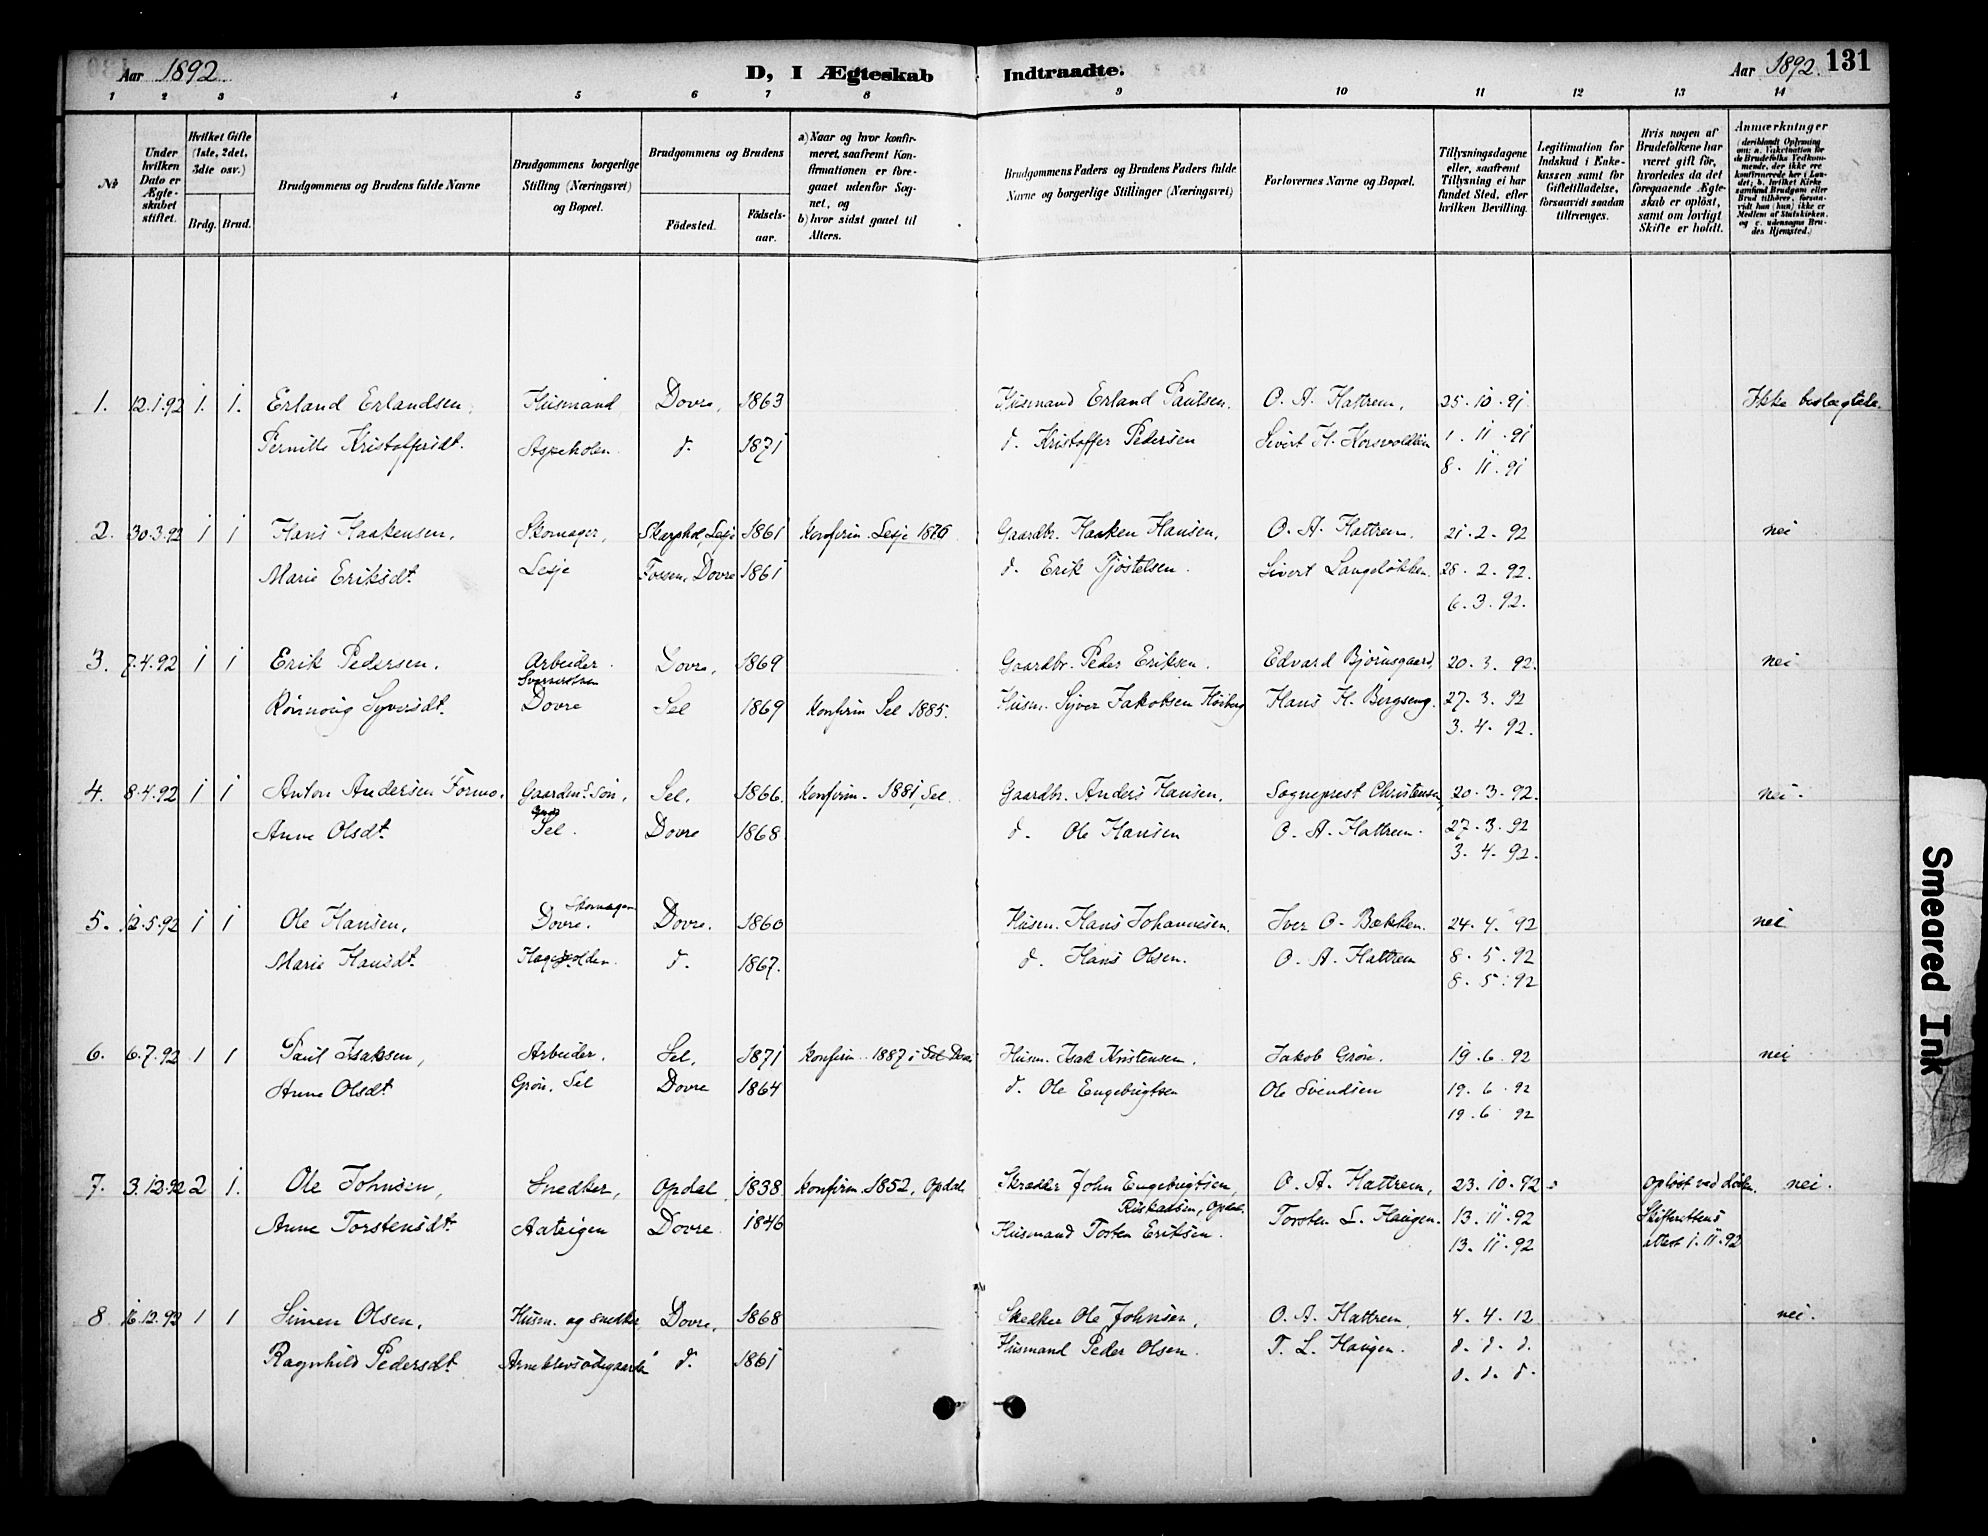 Aar 1892 D, I Ægteskab Indtraadte. Aar 1892. 131
1 2 3 4 5 6 7 8 9 10 11 12 13 14
Nr
Under hvilken Dato er Ægteskabet stiftet.
Hvilket Gifte (1ste, 2det, 3die osv.)
Brdg. Brud.
Brudgommens og Brudens fulde Navne
Brudgommens borgerlige Stilling (Næringsvei) og Bopæl.
Brudgommens og Brudens
Fødested. Fødselsaar.
a) Naar og hvor konfirmeret, saafremt Konfirmationen er foregaaet udenfor Sognet, og
b) hvor sidst gaaet til Alters.
Brudgommens Faders og Brudens Faders fulde Navne og borgerlige Stillinger (Næringsvei)
Forlovernes Navne og Bopæl.
Tillysningsdagene eller, saafremt Tillysning ei har fundet Sted, efter hvilken Bevilling.
Legitimation for Indskud i Enkekassen samt for Giftetilladelse, forsaavidt saadan tiltrænges.
Hvis nogen af Brudefolkene har været gift før, hvorledes da det foregaaende Ægteskab er opløst, samt om lovligt Skifte er holdt.
Anmærkninger (deriblandt Oplysning om: a. Vakcination for de Brudefolks Vedkommende, der ikke ere konfirmerede her i Landet; b. hvilket Kirkesamfund Brudgom eller Brud tilhører, forsaavidt han (hun) ikke er Medlem af Statskirken, og c. udensogns Brudes Hjemsted.)
1. 12.1.92 1. 1. Erland Erlandsen, Husmand Dovre, 1863 Husmand Erland Paulsen. O. A. Hattrem, 25.10.91 Ikke beslægtede.
Pernille Kristoffersdt. Aspeholen d. 1871 d. Kristoffer Pedersen Sivert H. Korsvolden 1.11.91
8.11.91
2. 30.3.92 1 1 Hans Haakensen, Skomager, Lesje 1861 Konfirm. Lesje 1876 Gaardbr. Haaken Hansen, O. A. Hattrem, 21.2.92 nei
Marie Eriksdt. Lesje Fossen, Dovre 1861 d. Erik Tjøstelsen. Sivert Langeløkken. 28.2.92.
6.3.92.
3. 7.4.92 1 1 Erik Pedersen, Arbeider. Dovre, 1869 Gaardbr. Peder Eriksen. Edvard Bjørnsgaard, 20.3.92. nei
Rønnoug Syversdt. Dovre Sel 1869 Konfirm Sel 1885. Husm. Syver Jakobsen Høiberg Hans H. Bergseng. 27.3.92
3.4.92.
4. 8.4.92 1 1 Anton Andersen Formo. Gaardm. Søn, Sel. 1866. Konfirm. 1881, Sel. Gaardbr. Anders Hansen, Sogneprest Christensen 20.3.92. nei.
Anne Olsdt. Sel. Dovre 1868. d. Ole Hansen O. A. Hattrem. 27.3.92
3.4.92.
5. 12.5.92 1 1 Ole Hansen, Skomager Dovre. Dovre. 1860 Husm. Hans Johannesen. Iver O. Bækken. 24.4.92 nei
Marie Hansdt. d. 1867. d. Hans Olsen. O. A. Hattrem 8.5.92
8.5.92
6. 6.7.92 1 1 Paul Isaksen, Arbeider. Sel, 1871 Konfirm. 1887 i Sel Dovre Husm. Isak Kristensen. Jakob Grøn. 19.6.92 nei
Anne Olsdt Grøn, Sel Dovre 1864 d. Ole Engebrigtsen Ole Svendsen 19.6.92
19.6.92
7. 3.12.92 2 1. Ole Johnsen, Snedker, Opdal 1838 Konfirm. 1852, Opdal. Skrædder John Engebrigtsen, O. A. Hattrem, 23.10.92 Opløst ved Døden. nei.
Opdal.
Anne Torstensdt. Dovre 1846 Husmand Tosten Eriksen. Torsten L. Haugen. 13.11.92 Skifterettens
13.11.92 attest 1.11.92
8 16.12.92 1 1 Simen Olsen, Husm. og snedker, Dovre, 1868 Snedker Ole Johnsen, O. A. Hattrem, 4.4.12 nei.
Ragnhild Pedersdt d. 1861 Husmand Peder Olsen. T. L. Haugen. d. d. d.
d. d. d.
Smeared Ink